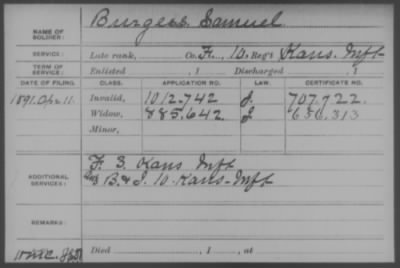 NAME OF SOLDIER: Burgess Samuel
SERVICE: Late rank, Co. F., 10. Reg't Kans. Inft
TERM OF SERVICE: Enlisted , 1 Discharged , 1
DATE OF FILING. CLASS. APPLICATION NO. LAW. CERTIFICATE NO.
1891. Apr 11. Invalid, 1012.742 J. 707.722.
Widow, 885.642. J 636.313
Minor,
ADDITIONAL SERVICES: F. 3. Kans Inft
B. & I. 10. Kans. Inft
REMARKS:
Died , 1 , at